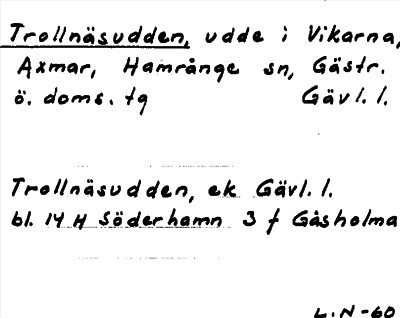 Trollnäsudden, udde i Vikarna,
Axmar, Hamrånge sn, Gästr.
ö. doms. tg Gävl. l.
Trollnäsudden, ek Gävl. l.
bl. 14 H Söderhamn 3 f Gåsholma
L.N-60